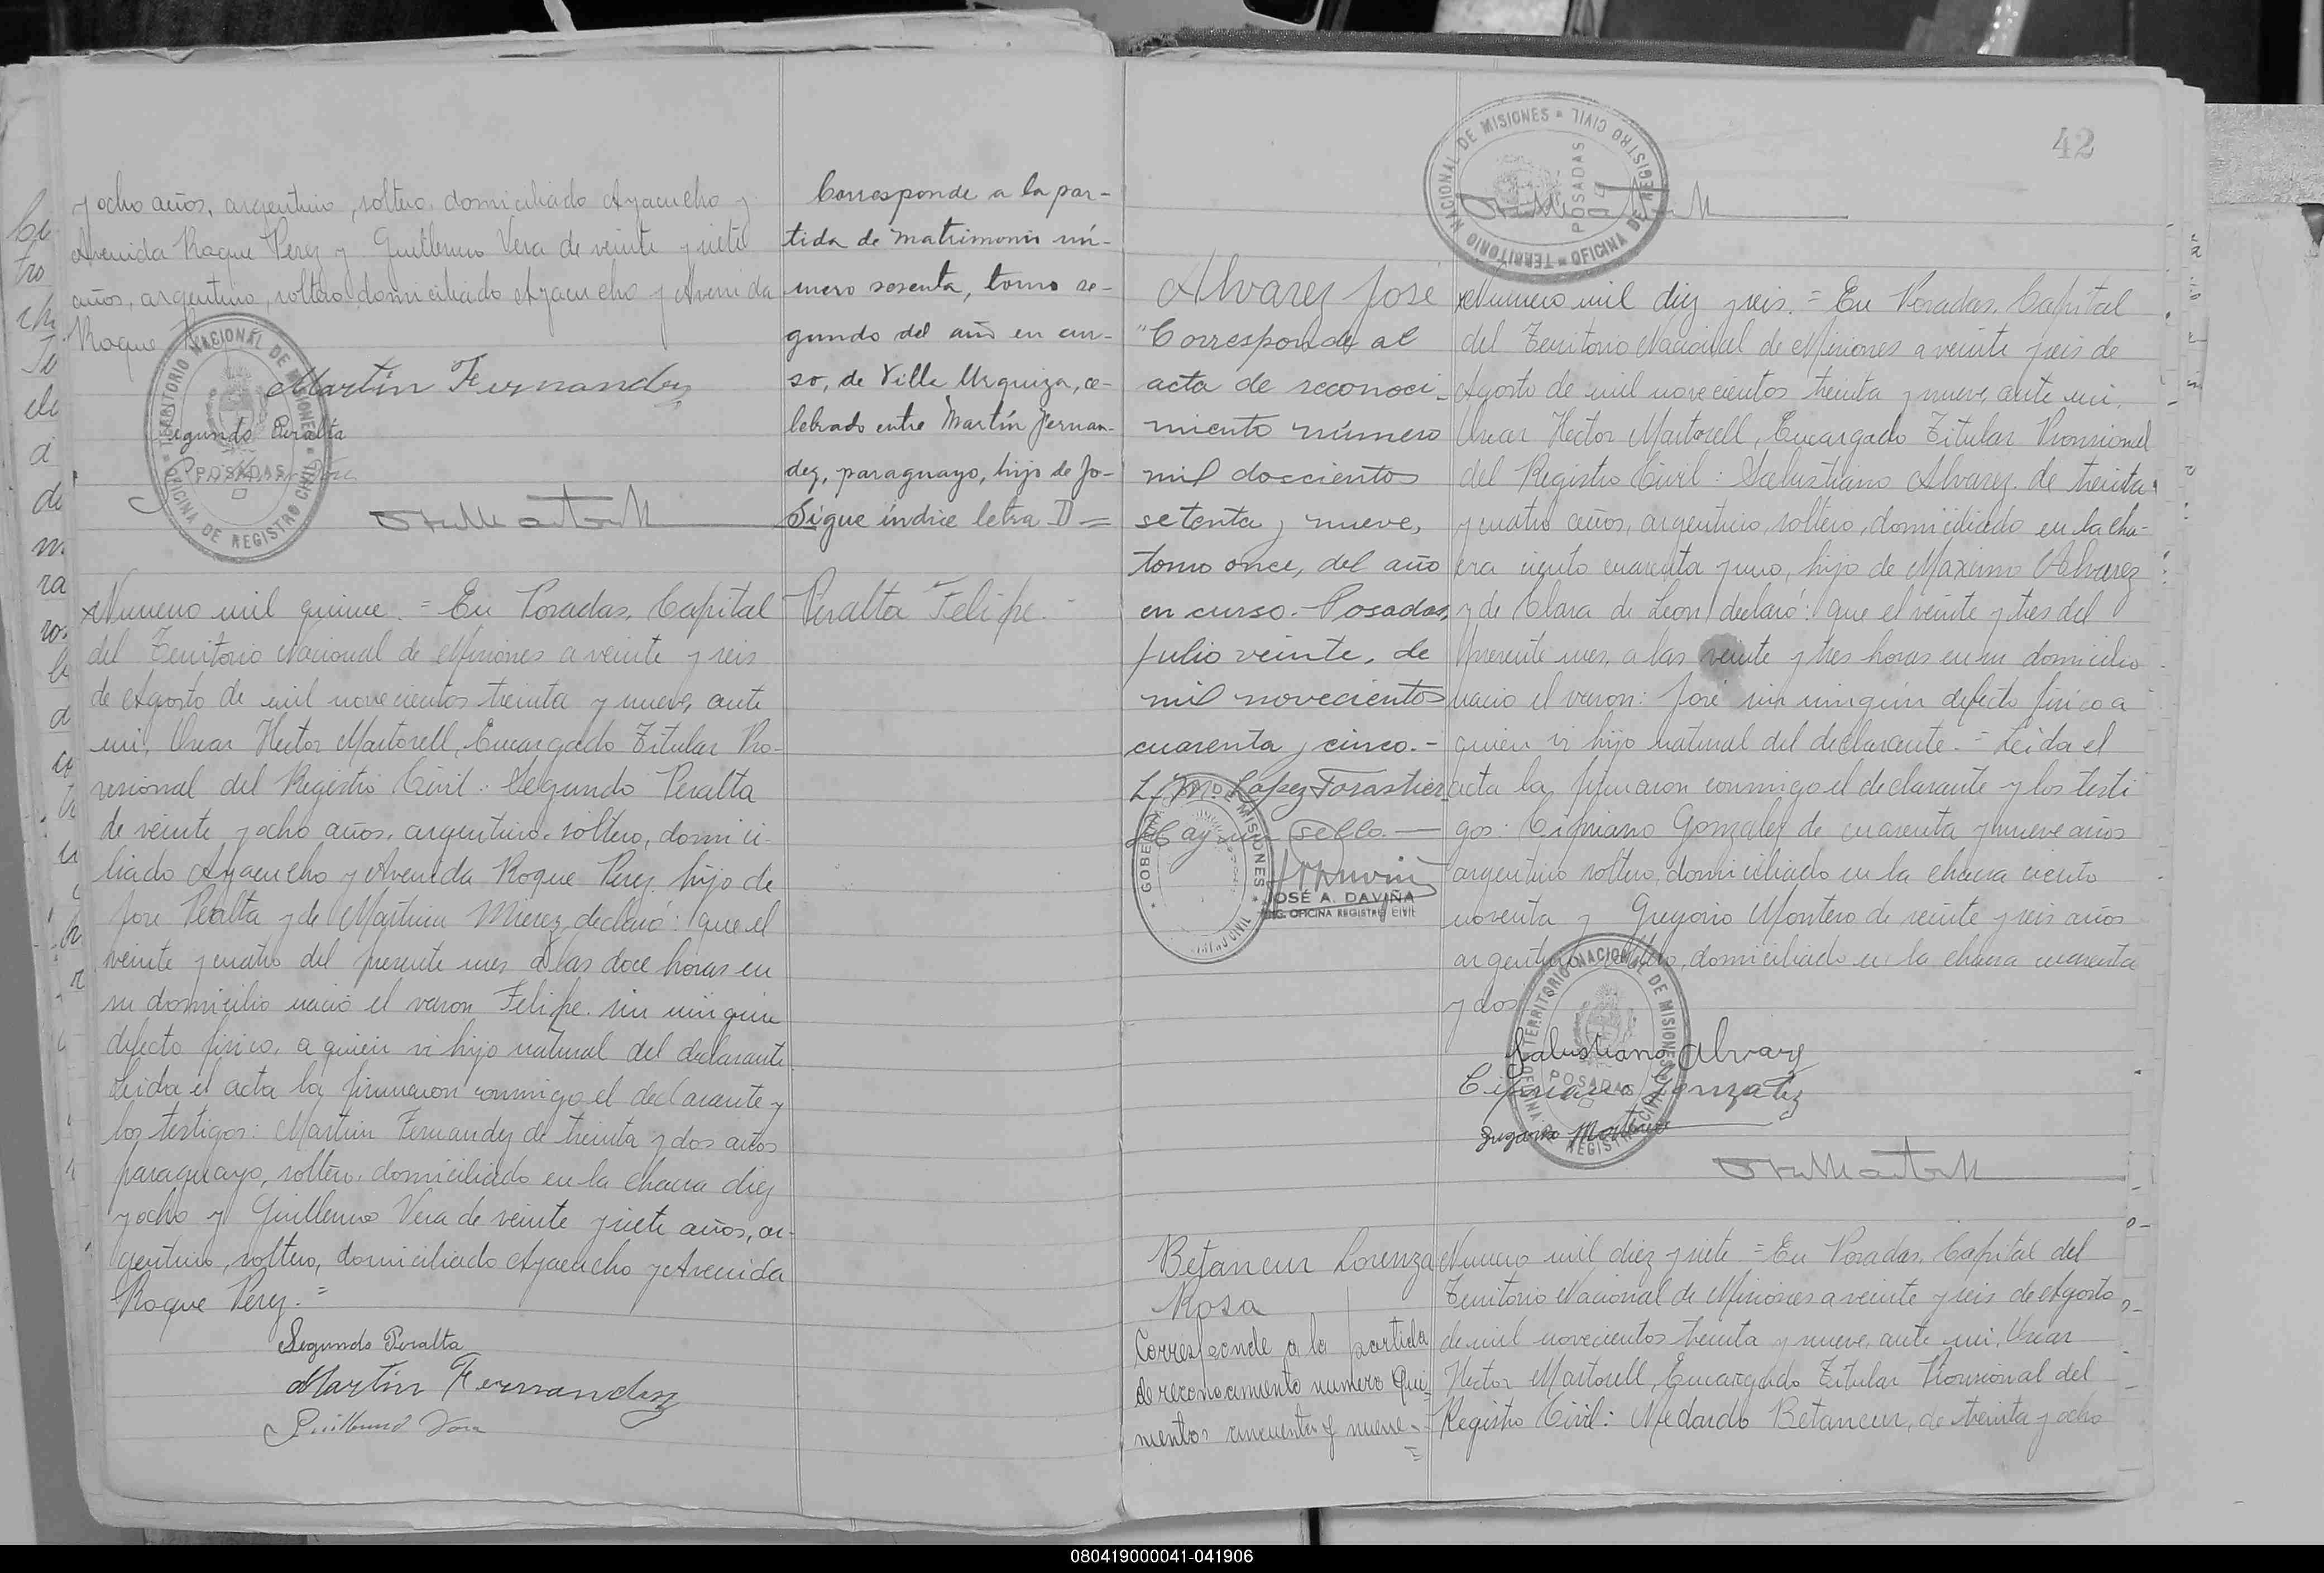 y ocho años, argentino, soltero, domiciliado Ayacucho y
Avenida Roque Perez y Guillermo Vera de veinte y siete
años, argentino, soltero, domiciliado Ayacucho y Avenida
Roque
Martin Fernandez
Segundo Peralta
TERRITORIO NACIONAL DE MISIONES
POSADAS
OFICINA DE REGISTRO CIVIL
Corresponde a la par-
tida de matrimonio nú-
mero sesenta, tomo se-
gundo del año en cur-
so, de Villa Urquiza, ce-
lebrado entre Martín Fernan-
dez, paraguayo, hijo de Jo-
Sigue índice letra D =
Numero mil quince. = En Posadas, Capital
del Territorio Nacional de Misiones a veinte y seis
de Agosto de mil novecientos treinta y nueve, ante
mi, Oscar Hector Martorell, Encargado Titular Pro-
visional del Registro Civil: Segundo Peralta
de veinte y ocho años, argentino, soltero, domici-
liado Ayacucho y Avenida Roque Perez, hijo de
Jose Peralta y de Martina Mierez, declaró: que el
veinte y cuatro del presente mes a las doce horas en
su domicilio nació el varon Felipe, sin ningun
defecto fisico, a quien vi hijo natural del declarante.
Leida el acta la firmaron conmigo el declarante y
los testigos: Martin Fernandez de treinta y dos años
paraguayo, soltero, domiciliado en la chacra diez
y ocho y Guillermo Vera de veinte y siete años, ar-
gentino, soltero, domiciliado Ayacucho y Avenida
Roque Perez. =
Segundo Peralta
Martin Fernandez
Guillermo Vera
Peralta Felipe.-
42
TERRITORIO NACIONAL DE MISIONES
POSADAS
OFICINA DE REGISTRO CIVIL
Alvarez José
"Corresponde al
acta de reconoci-
miento número
mil doscientos
setenta y nueve,
tomo once, del año
en curso.- Posadas,
julio veinte, de
mil novecientos
cuarenta y cinco.-
L. M. Lopez Forastier
Hay un sello.—
JOSÉ A. DAVIÑA
ENC. OFICINA REGISTRO CIVIL
Numero mil diez y seis. = En Posadas, Capital
del Territorio Nacional de Misiones a veinte y seis de
Agosto de mil novecientos treinta y nueve, ante mi,
Oscar Hector Martorell, Encargado Titular Provisional
del Registro Civil: Salustiano Alvarez de treinta
y cuatro años, argentino, soltero, domiciliado en la cha-
cra ciento cuarenta y uno, hijo de Maximo Alvarez
y de Clara de Leon, declaró: que el veinte y tres del
presente mes, a las veinte y tres horas en su domicilio
nacio el varon: José sin ningún defecto fisico a
quien vi hijo natural del declarante. = Leida el
acta la firmaron conmigo el declarante y los testi
gos: Cipriano Gonzalez de cuarenta y nueve años
argentino soltero, domiciliado en la chacra ciento
noventa y Gregorio Montero de veinte y seis años
argentino, soltero, domiciliado en la chacra cuarenta
y dos
Salustiano Alvarez
Cipriano Gonzalez
Gregorio Montero
TERRITORIO NACIONAL DE MISIONES
POSADAS
OFICINA DE REGISTRO CIVIL
Betancur Lorenza
Rosa
Corresponde a la partida
de reconocimiento numero Qui-
nientos cincuenta y nueve-
Numero mil diez y siete = En Posadas, Capital del
Territorio Nacional de Misiones a veinte y seis de Agosto
de mil novecientos treinta y nueve, ante mi, Oscar
Hector Martorell, Encargado Titular Provisional del
Registro Civil: Medardo Betancur, de treinta y ocho
080419000041-041906